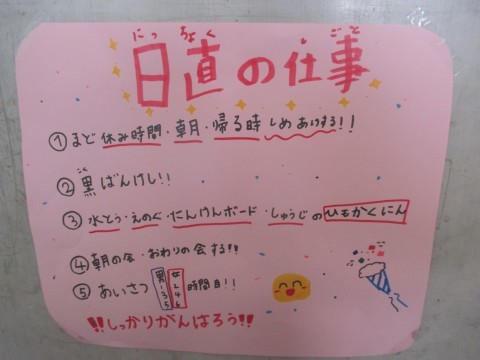 にっちょく ごと
日直の仕事
①まど 休み時間・朝・帰る時 しめあけする!!
こく
②黒ばんけし!!
③水とう・えのぐ・にんけんボード・しゅうじのひもかくにん
④朝の会・おわりの会する!!
⑤あいさつ 男135 女246 時間目!!
!!しっかりがんばろう!!